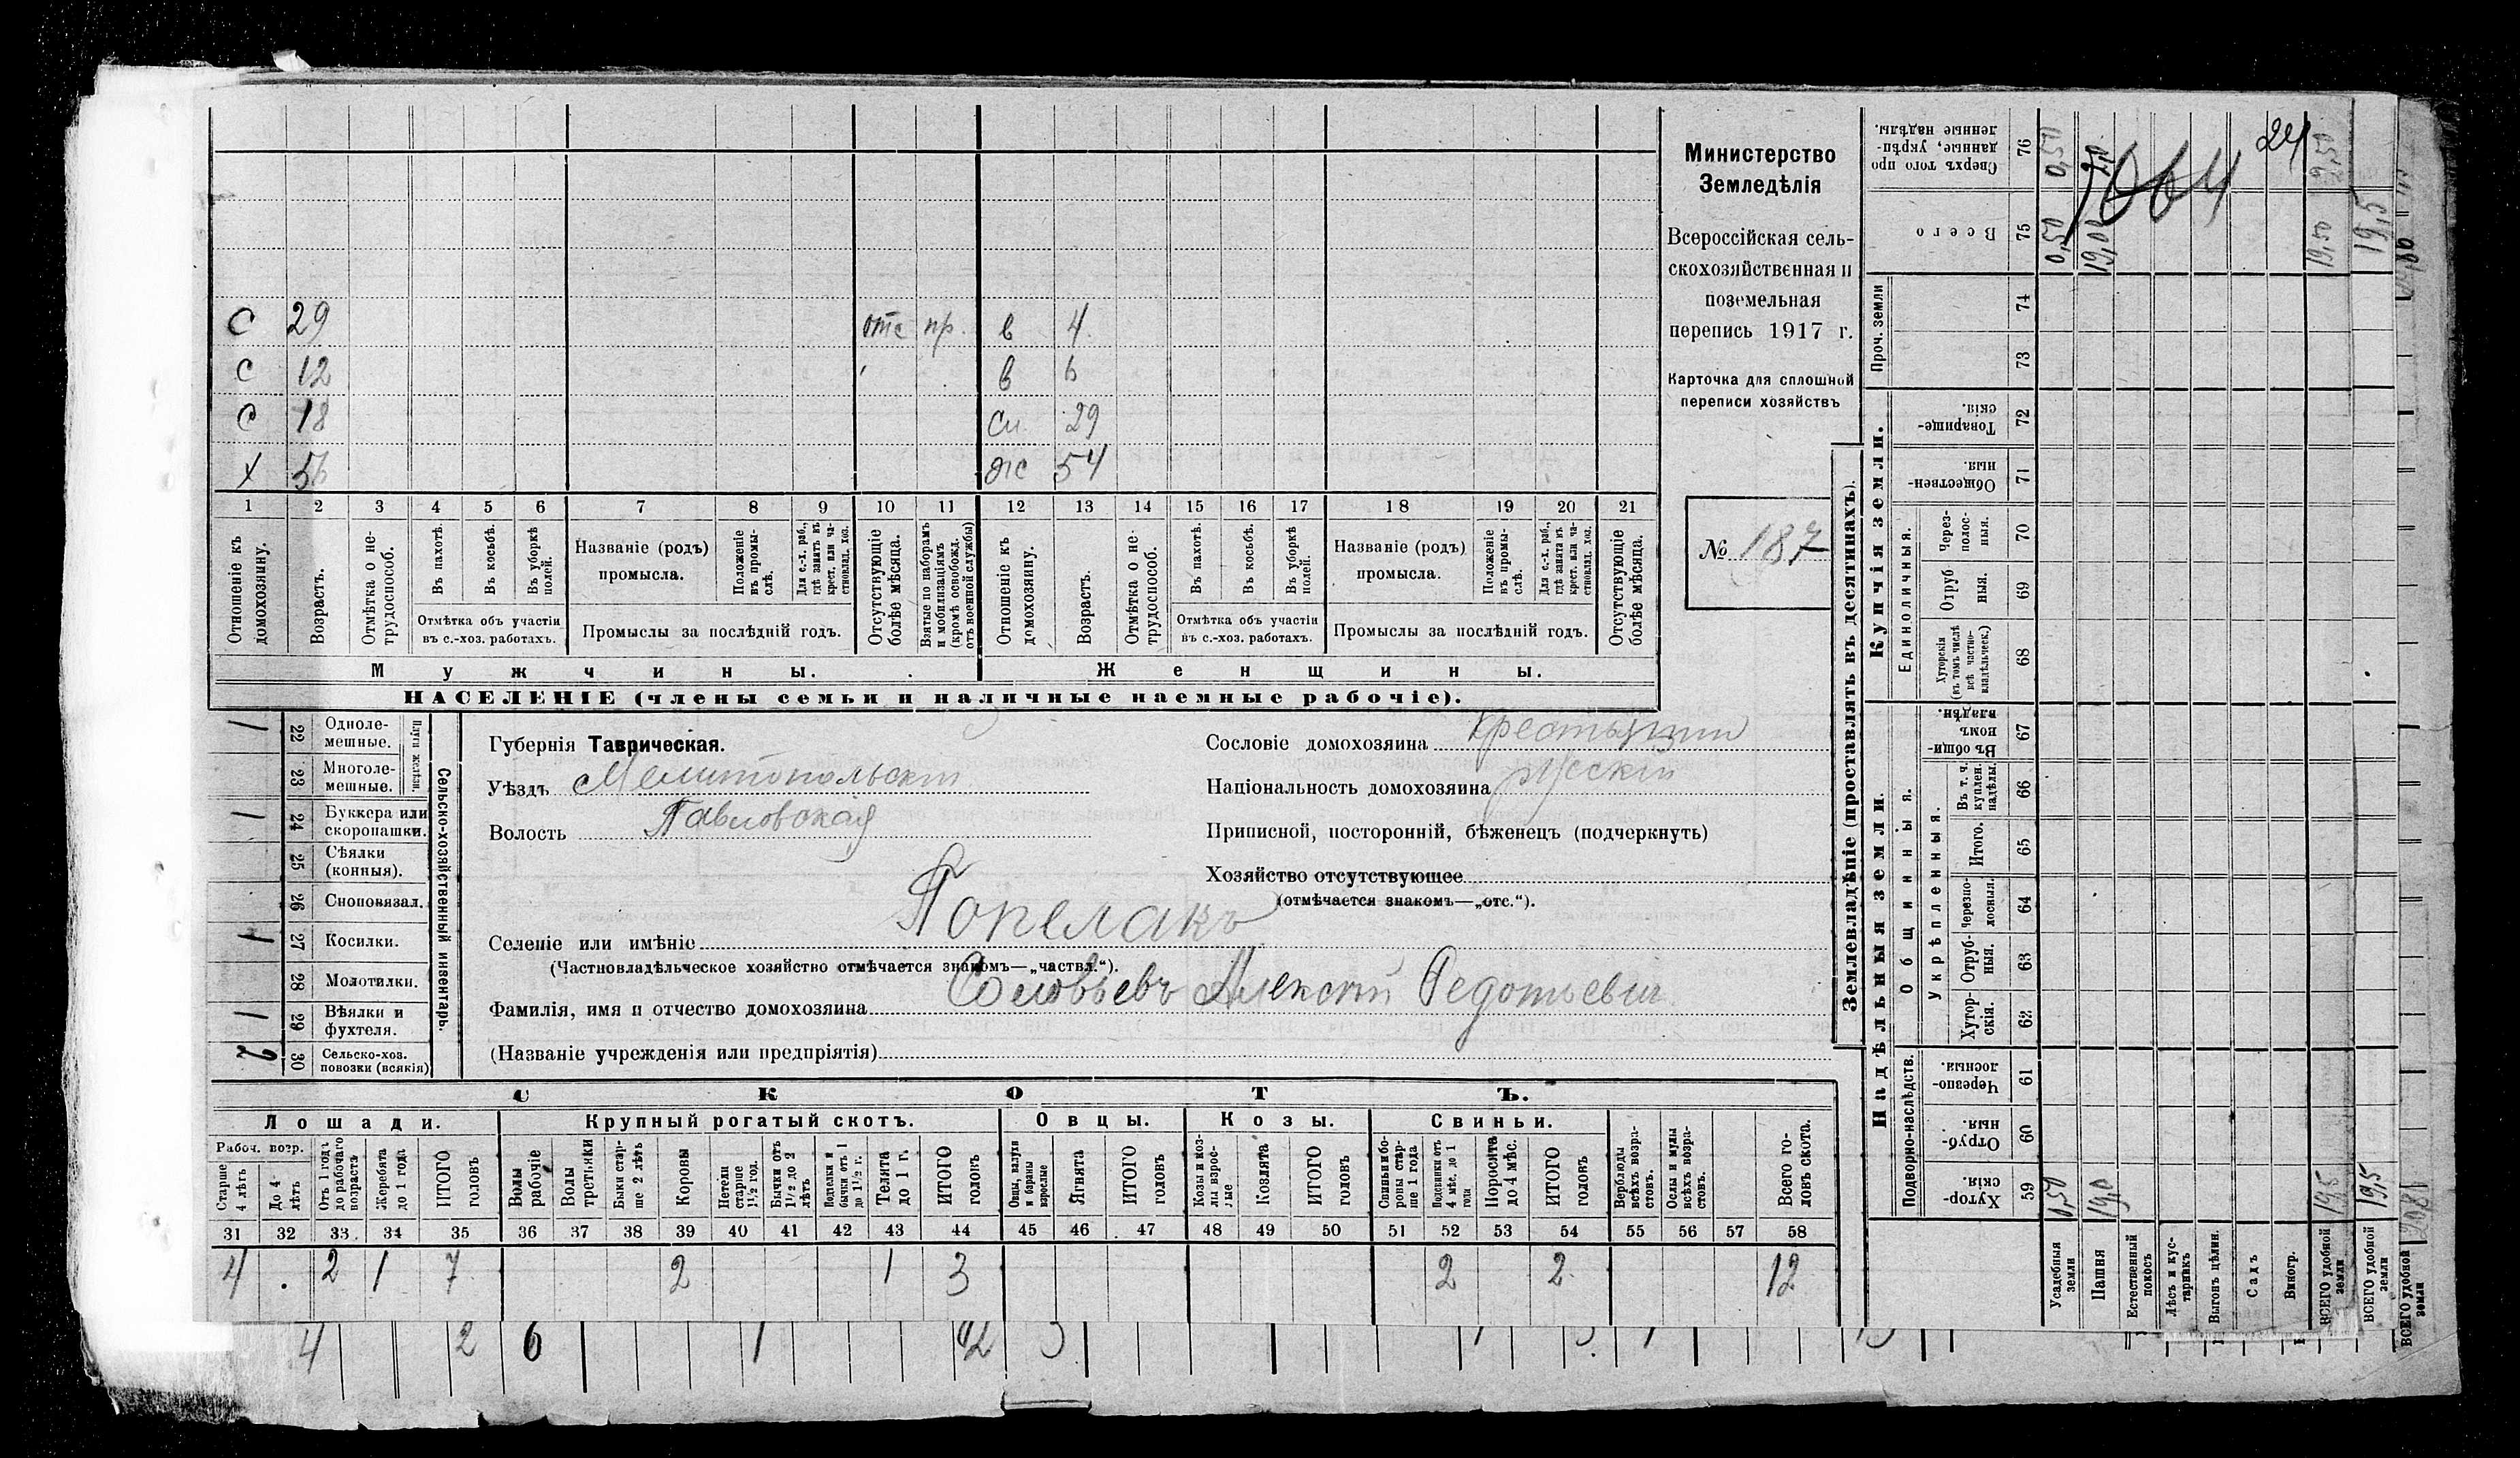 С 29 отс пр. в 4
С 12 в 6
С 18 сн 29
х 56 ж 54
1 2 3 4 5 6 7 8 9 10 11 12 13 14 15 16 17 18 19 20 21
Отношеніе къ домохозяину.
Возрастъ.
Отмѣтка о не-трудоспособ.
Въ пахотѣ.
Въ косьбѣ.
Въ уборкѣ полей.
Отмѣтка объ участіи
въ с.-хоз. работахъ.
Названіе (родъ)
промысла.
Положеніе въ промы-слѣ.
Для с.-х. раб., гдѣ занятъ въ крест. или ча-стновлад. хоз.
Промыслы за послѣдній годъ.
Отсутствующіе болѣе мѣсяца.
Взятые по наборамъ и мобилизаціямъ (кромѣ освобожд. отъ военной службы)
Отношеніе къ домохозяину.
Возрастъ.
Отмѣтка о не-трудоспособ.
Въ пахотѣ.
Въ косьбѣ.
Въ уборкѣ полей.
Отмѣтка объ участіи
въ с.-хоз. работахъ.
Названіе (родъ)
промысла.
Положеніе въ промы-слѣ.
Для с.-х. раб., гдѣ занята въ крест. или ча-стновлад. хоз.
Промыслы за послѣдній годъ.
Отсутствующіе болѣе мѣсяца.
Мужчины. Женщины.
НАСЕЛЕНІЕ (члены семьи и наличные наемные рабочіе).
Министерство
Земледѣлія
Всероссійская сель-
скохозяйственная и
поземельная
перепись 1917 г.
Карточка для сплошной
переписи хозяйствъ
№ 187
Сельско-хозяйственный инвентарь.
Плуги желѣзн.
1 22 Одноле-мешные.
23 Многоле-мешные.
1 24 Буккера или скоропашки.
25 Сѣялки (конныя).
26 Сноповязал.
1 27 Косилки.
28 Молотилки.
1 29 Вѣялки и фухтеля.
2 30 Сельско-хоз. повозки (всякія)
Губернія Таврическая.
Уѣздъ Мелитопольскій
Волость Павловская
Сословіе домохозяина крестьянин
Національность домохозяина русскій
Приписной, посторонній, бѣженецъ (подчеркнуть)
Хозяйство отсутствующее
(отмѣчается знакомъ—„отс.“).
Селеніе или имѣніе Попелакъ
(Частновладѣльческое хозяйство отмѣчается знакомъ—„частвл.“).
Фамилія, имя и отчество домохозяина Соловьевъ Алексѣй Федотьевич
(Названіе учрежденія или предпріятія)
СКОТЪ.
Лошади. Крупный рогатый скотъ. Овцы. Козы. Свиньи.
Рабоч. возр.
Старше 4 лѣтъ
До 4-лѣтъ
Отъ 1 годъ до рабочаго возраста
Жеребята до 1 года
ИТОГО головъ
Волы рабочіе
Волы третьяки
Быки стар-ше 2 лѣтъ
Коровы
Нетели старше 1½ год.
Бычки отъ 1½ до 2 лѣтъ
Подтелки и бычки отъ 1 до 1½ г.
Телята до 1 г.
ИТОГО головъ
Овцы, валухи и бараны взрослые
Ягнята
ИТОГО головъ
Козы и коз-лы взрос-лые
Козлята
ИТОГО головъ
Свиньи и бо-ровы стар-ше 1 года
Подсвинки отъ 4 мѣс. до 1 года
Поросята до 4 мѣс.
ИТОГО головъ
Верблюды всѣхъ возра-стовъ.
Ослы и мулы всѣхъ возра-стовъ.
Всего го-ловъ скота.
31 32 33 34 35 36 37 38 39 40 41 42 43 44 45 46 47 48 49 50 51 52 53 54 55 56 57 58
4 . 2 1 7 2 1 3 2 2 12
4 2 6 1
Землевладѣніе (проставлять въ десятинахъ).
Купчія земли.
Надѣльныя земли.
Сверхъ того про данные, укрѣп-ленные надѣлы. 76 0,50
Всего 75 0,50 19,00 19,50 19,5
1064
24
Проч. земли 74 73
Товарище-скія. 72
Обществен-ныя. 71
Единоличныя.
Через-полос-ныя. 70
Отруб ныя. 69
Хуторскія (въ томъ числѣ всѣ частно-владѣльческ.) 68
Общинныя.
Въ общин номъ владѣн. 67
Укрѣпленныя.
Въ т. ч. куплен. надѣлы. 66
Итого. 65
Черезпо-лосныя. 64
Отруб-ныя. 63
Хутор-скія. 62
Подворно-наслѣдств.
Черезпо-лосныя 61
Отруб-ныя 60
Хутор-скія. 59 0,50 19,0 19,5 19,5
Усадебныя земли
Пашня
Естественный покосъ
Лѣсъ и кус-тарникъ
Выгонъ цѣлин.
Садъ
Виногр.
ВСЕГО удобной земли
ВСЕГО удобной земли
ВСЕГО удобной земли